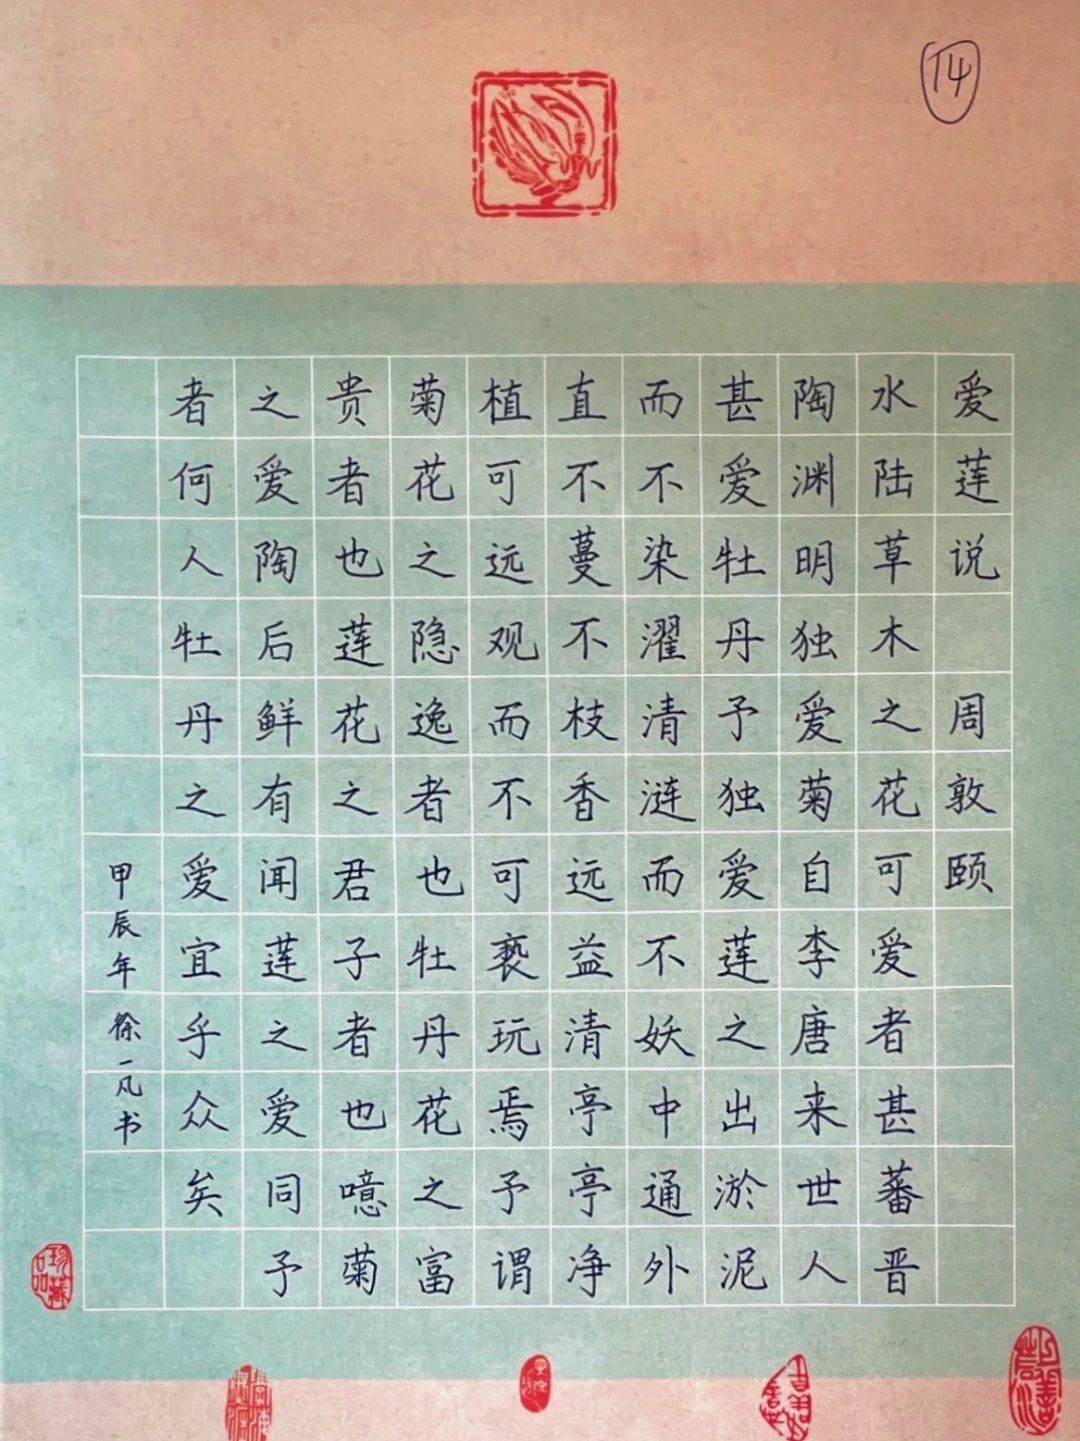 14
爱莲说 周敦颐
水陆草木之花可爱者甚蕃晋
陶渊明独爱菊自李唐来世人
甚爱牡丹予独爱莲之出淤泥
而不染濯清涟而不妖中通外
直不蔓不枝香远益清亭亭净
植可远观而不可亵玩焉予谓
菊花之隐逸者也牡丹花之富
贵者也莲花之君子者也噫菊
之爱陶后鲜有闻莲之爱同予
者何人牡丹之爱宜乎众矣
甲辰年 徐一凡书
珍藏